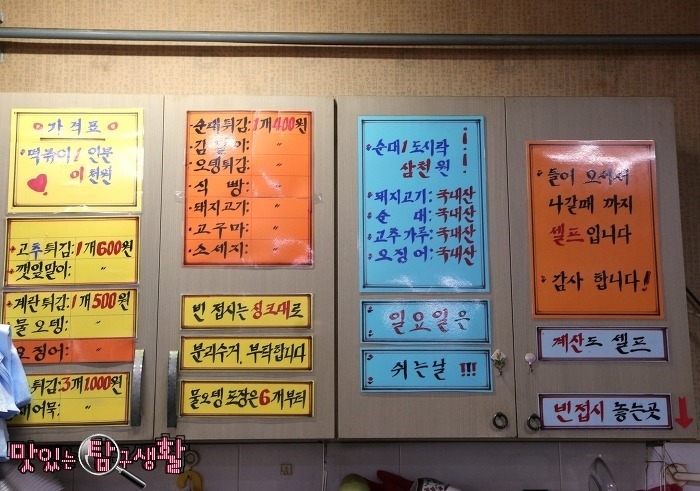 가격표
떡볶이 1인분
이천원
고추튀김: 1개 600원
깻잎말이: 〃
계란튀김: 1개 500원
물오뎅: 〃
오징어: 〃
튀김: 3개 1,000원
〃
순대튀김: 1개 400원
김말이 〃
오뎅튀김: 〃
식빵: 〃
돼지고기: 〃
고구마: 〃
소세지: 〃
빈 접시는 싱크대로
분리수거, 부탁합니다
물오뎅 포장은 6개부터
순대 1 도시락
삼천원!
돼지고기: 국내산
순대: 국내산
고추가루: 국내산
오징어: 국내산
일요일은
쉬는날 !!!
들어 오셔서
나갈때 까지
셀프 입니다
감사 합니다!
계산도 셀프
빈접시 놓는곳
맛있는 탐구생활